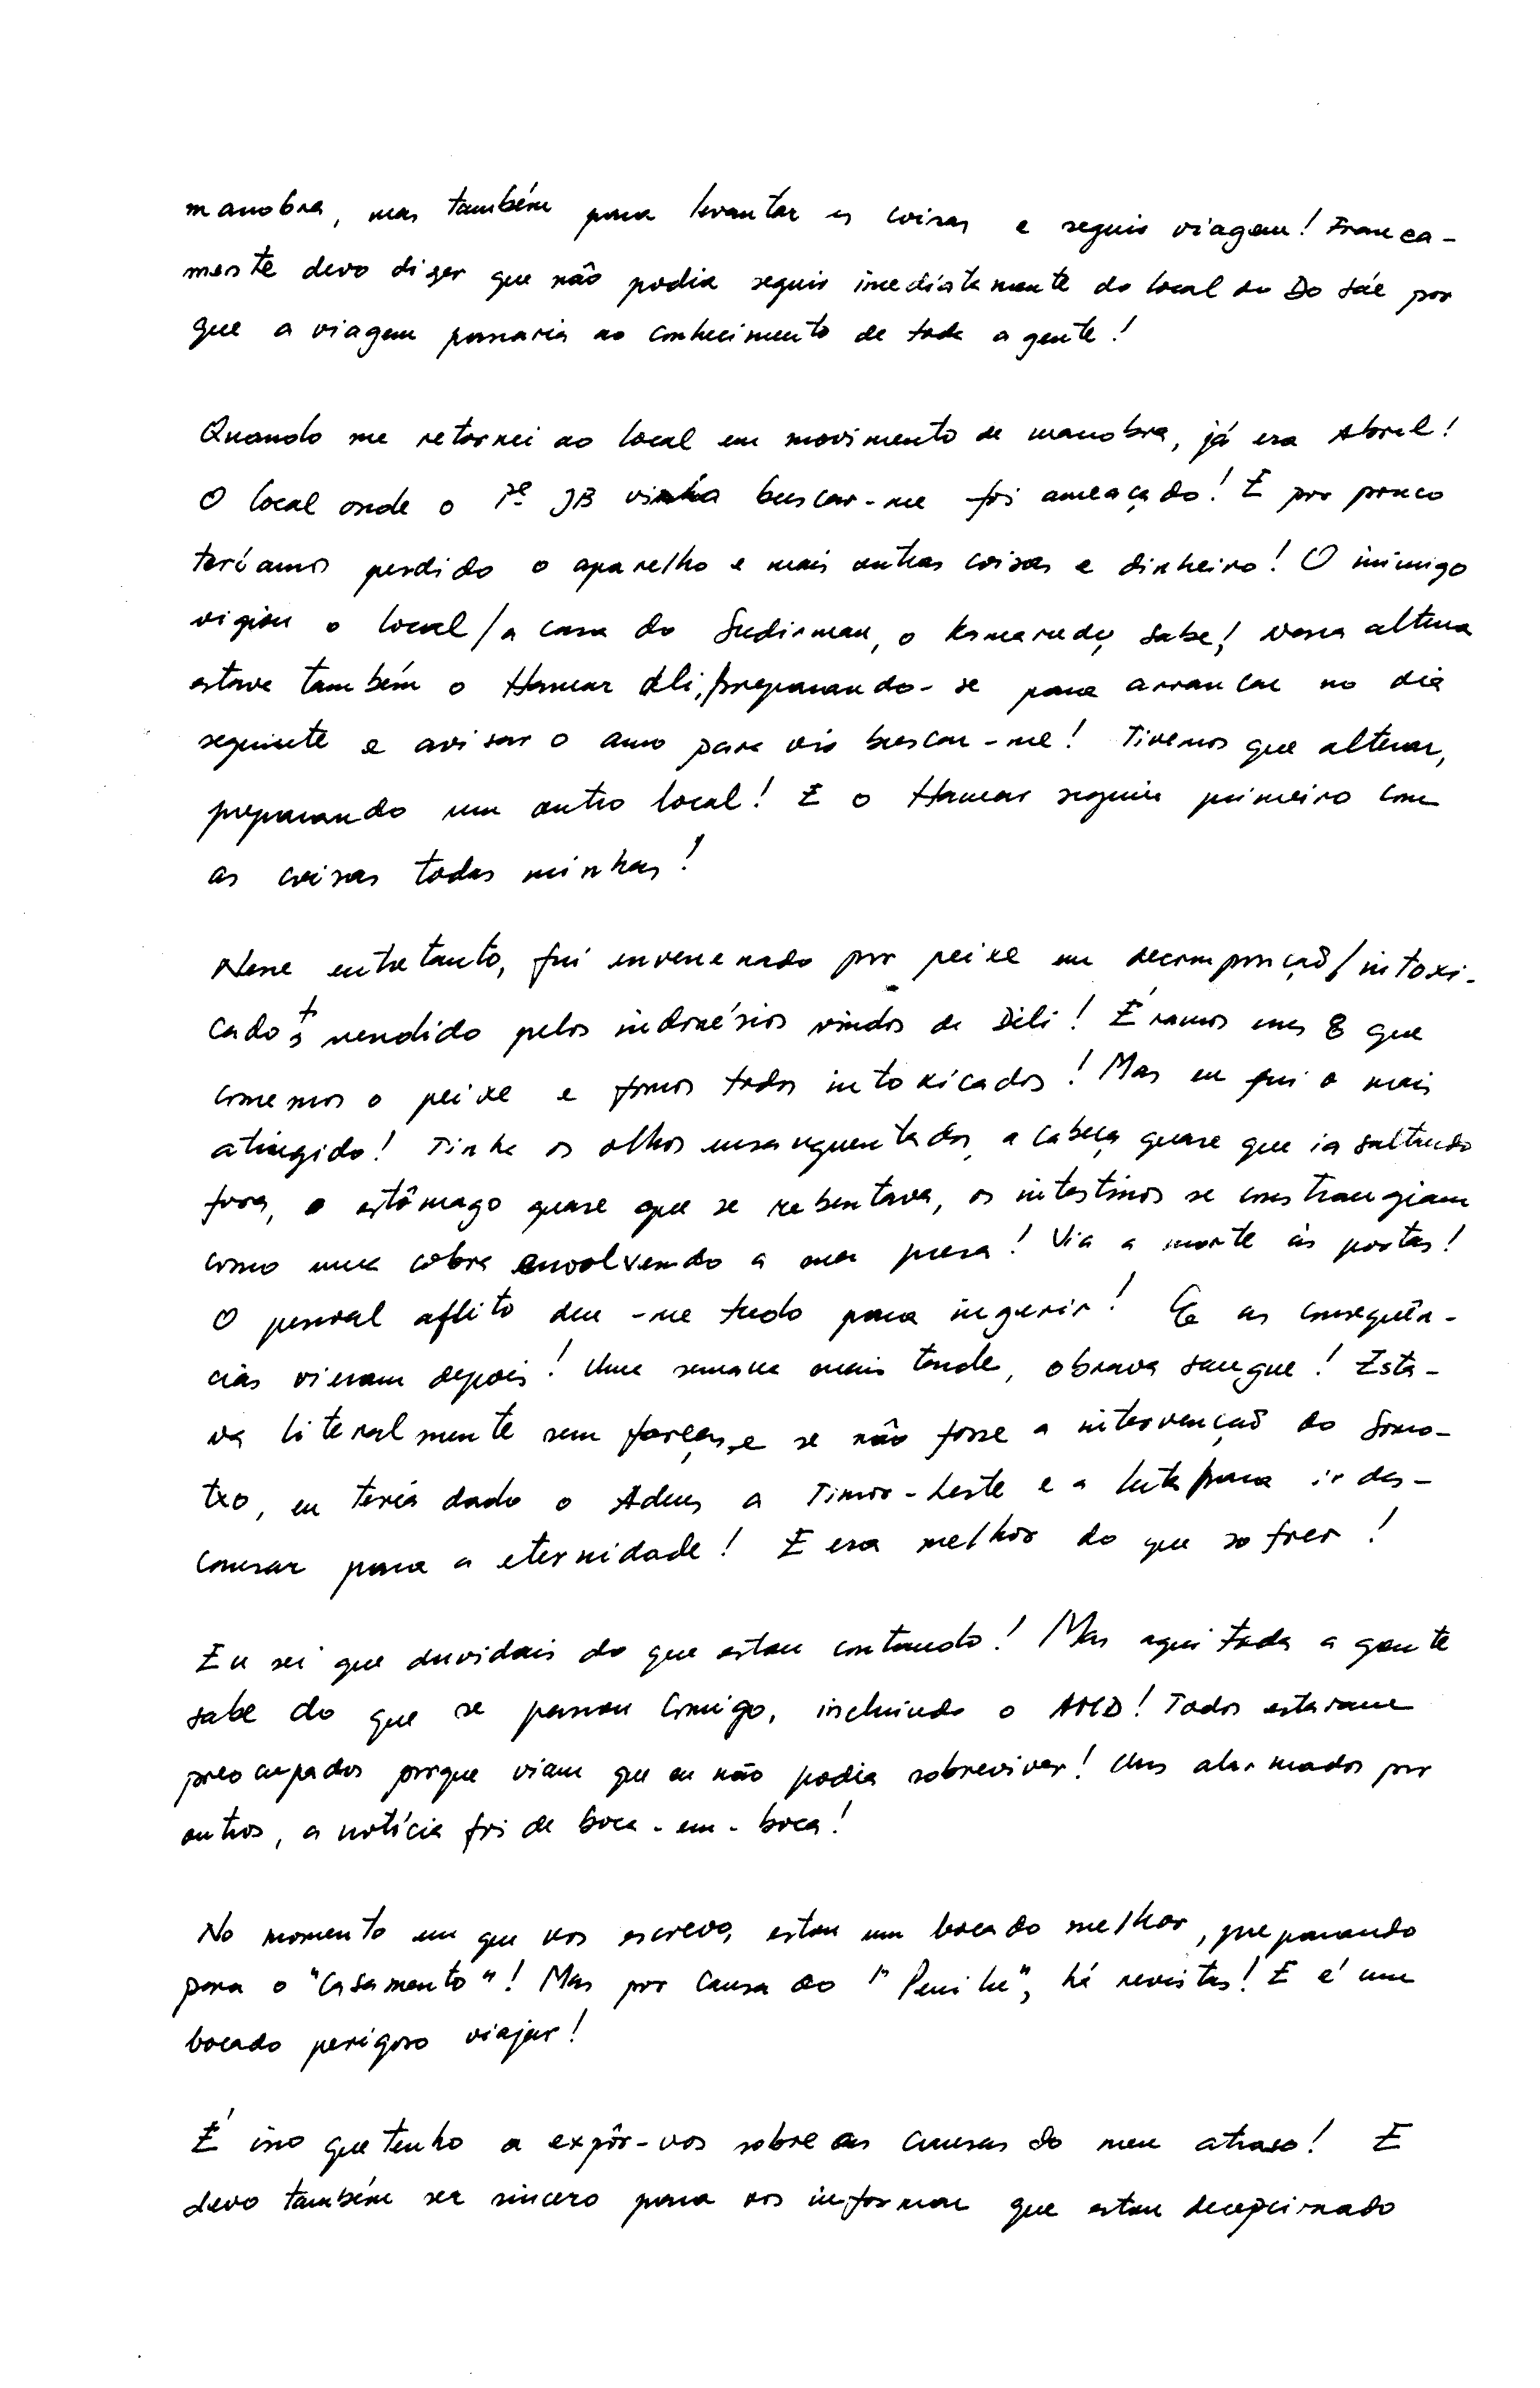 manobra, mas também para levantar as coisas e seguir viagem! Franca-
mente devo dizer que não podia seguir imediatamente do local do Do Sáe por
que a viagem passaria ao conhecimento de toda a gente!
Quando me retornei ao local em movimento de manobra, já era Abril!
O local onde o Pe JB vinha buscar-me foi ameaçado! E por pouco
teríamos perdido o aparelho e mais outras coisas e dinheiro! O inimigo
vigiou o local/a casa do Sudirman, o sabe! Nessa altura
estava também o Hamar Ali, preparando-se para arrancar no dia
seguinte e avisar o amo para vir buscar-me! Tivemos que alterar,
preparando um outro local! E o Hamar seguiu primeiro com
as coisas todas minhas!
Nesse entretanto, fui envenenado por peixe em decomposição/intoxi-
cado vendido pelos indonésios vindos de Dili! Éramos uns 8 que
comemos o peixe e fomos todos intoxicados! Mas eu fui o mais
atingido! Tinha os olhos ensanguentados, a cabeça quase que ia saltando
fora, o estômago quase que se rebentava, os intestinos se constrangiam
como uma cobra envolvendo a sua presa! Via a morte às portas!
O pessoal aflito deu-me tudo para ingerir! E as consequên-
cias vieram depois! Uma semana mais tarde, obrava sangue! Esta-
va literalmente sem forças, e se não fosse a intervenção do Somo-
txo, eu teria dado o Adeus a Timor-Leste e a luta para ir des-
cansar para a eternidade! E era melhor do que sofrer!
Eu sei que duvidais do que estou contando! Mas aqui toda a gente
sabe do que se passou comigo, incluindo o AMD! Todos estavam
preocupados porque viam que eu não podia sobreviver! Uns alarmados por
outros, a notícia foi de boca-em-boca!
No momento em que vos escrevo, estou um bocado melhor, preparando
para o "Casamento"! Mas por causa do "Peniche", há revistas! E é um
bocado perigoso viajar!
É isso que tenho a expôr-vos sobre as causas do meu atraso! E
devo também ser sincero para vos informar que estou decepcionado